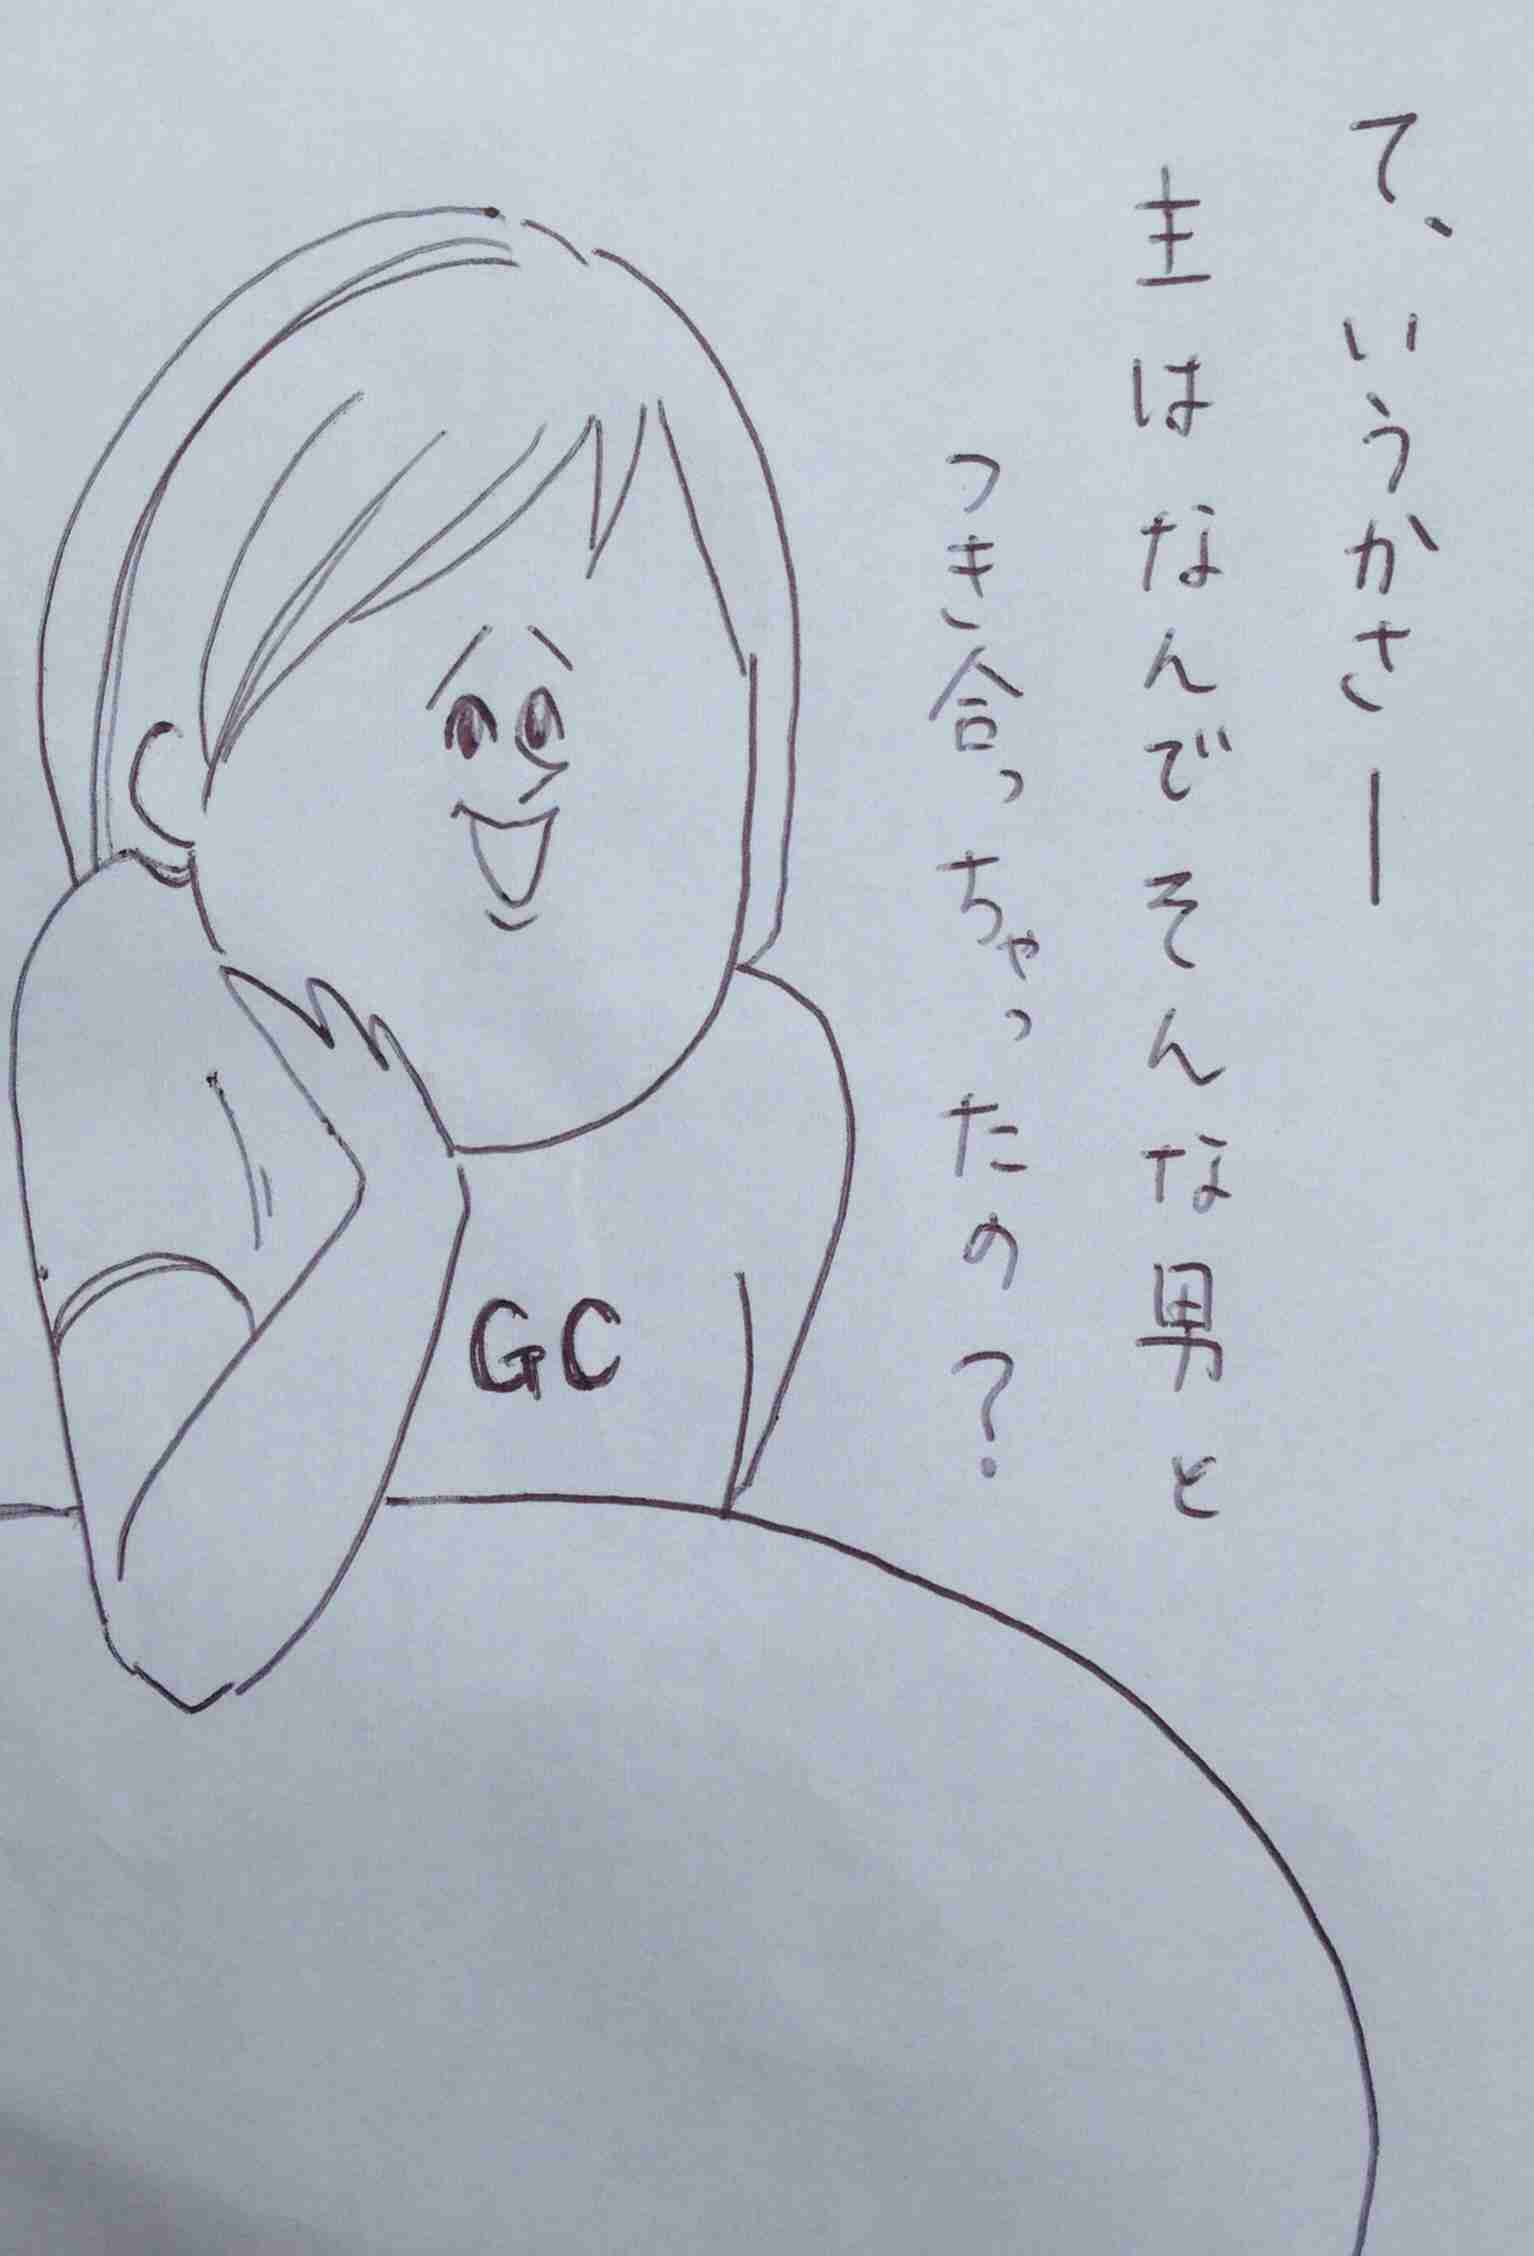 て、いうかさー
主はなんでそんな男と
つき合っちゃったの?
GC